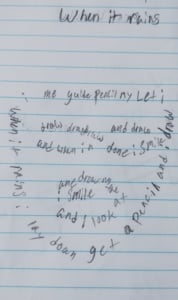 When it rains
me guide pencil my Let i
draw draw draw and draw
and when i'm done i smile
and draw
i smile
the
and I look at
When it rains i
lay down get a pencil and i draw